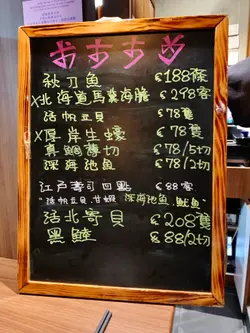 おすすめ
秋刀魚 $188條
X北海道馬糞海膽 $298客
活帆立貝 $78隻
X厚岸生蠔 $78隻
真鯛薄切 $78/5切
深海池魚 $78/2切
江戶壽司四點 $88客
"活帆立貝.甘蝦 深海池魚.魷魚"
活北寄貝 $208隻
黑鮭 $88/2切